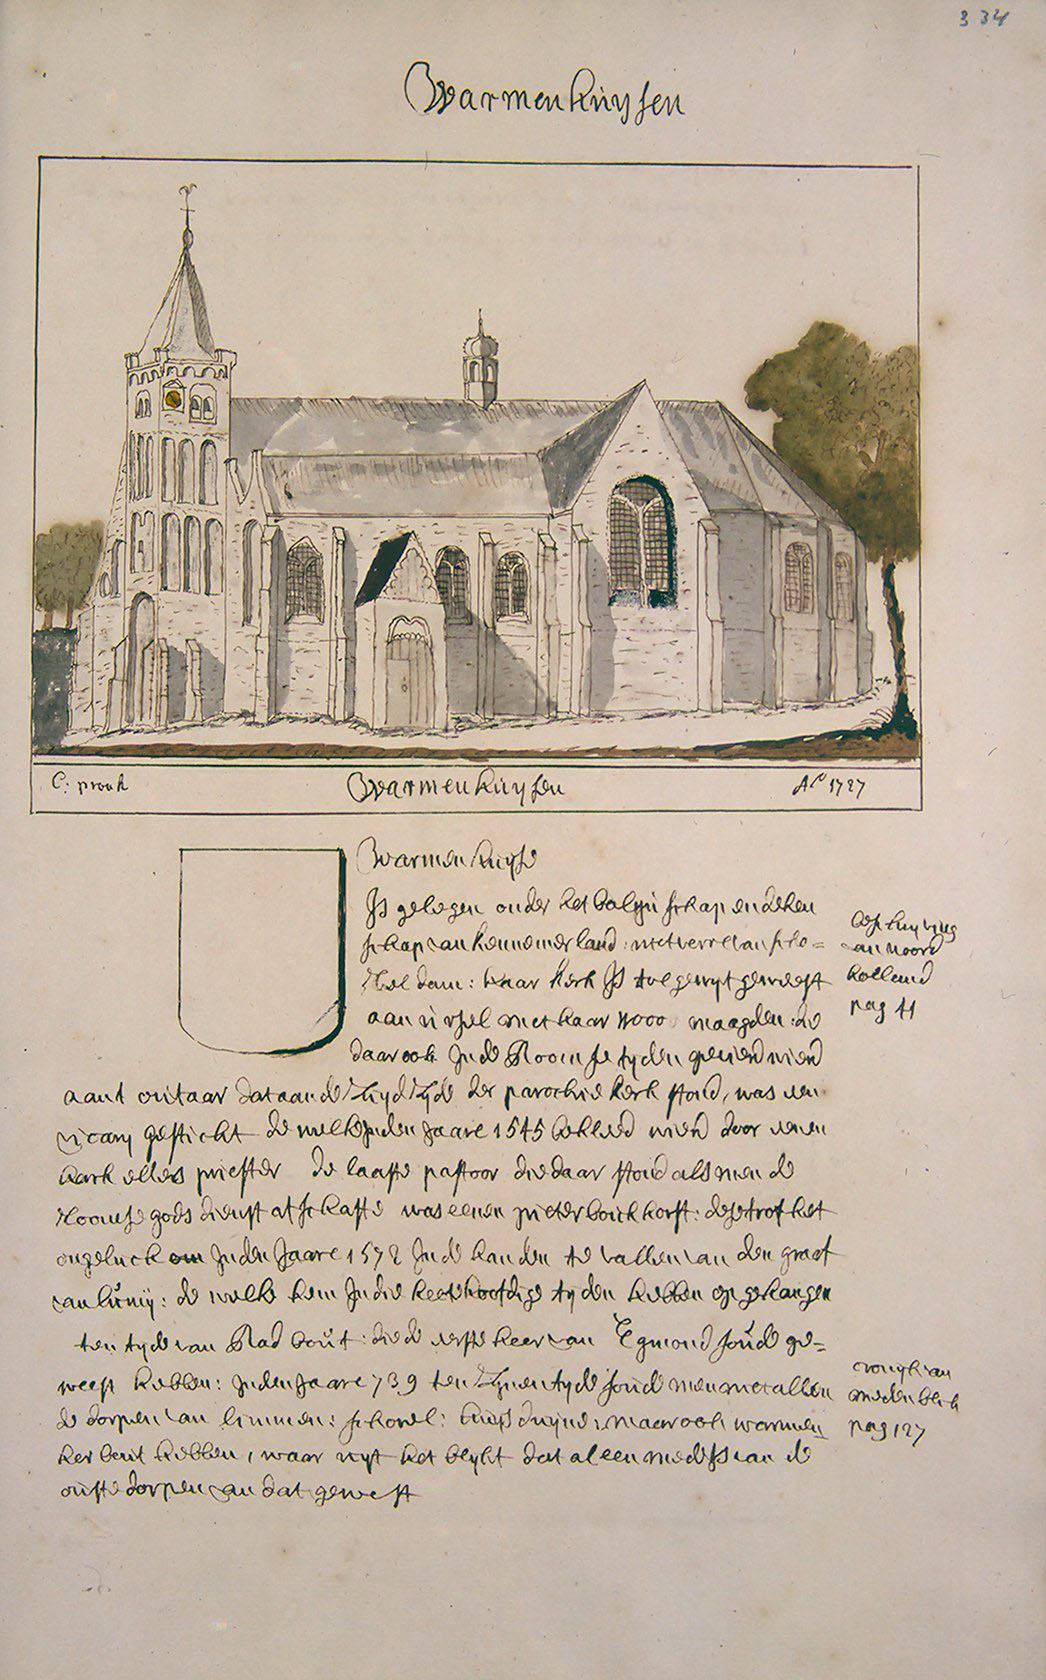 334
Warmenhuysen
C: pronk
Warmenhuysen
Ao 1727
Warmenhuyse
Is gelegen onder het baljuschap en deken
schap van kennemerland: niet verre van scho=
rel dam: haar kerk Is toe gewyt geweest
aan ursel met haar 11000 maagden: die
daar ook Inde Roomse tyden gevierd wierd
aant outaar dat aan de Zuyd Zyde der parochie kerk stond, was een
vicary gesticht de welke Inden Jaare 1545 bekleed wierd door eenen
priester de laaste pastoor die daar stond als men de
Roomse gods dienst afschafte was eenen pieter bockhorst: dese trof het
ongeluck om Inden Jaare 1572 Inde handen te vallen van den graaf
van lumij: de welke hem In die heethoofdige tyden hebben opgehangen
ten tyde van Radbout: die de eerste heer van Egmond soude ge=
weest hebben: Inden Jaare 739 ten Zynen tyde soude men met alleen
de dorpen van limmen: schorel: huysduyne: maar ook warmen
huysen gehad hebben, waar uyt het blykt dat al een mede Is van de
outste dorpen van dat gewest
beschryving
van noord
holland
pag 41
cronyk van
medenblik
pag 127